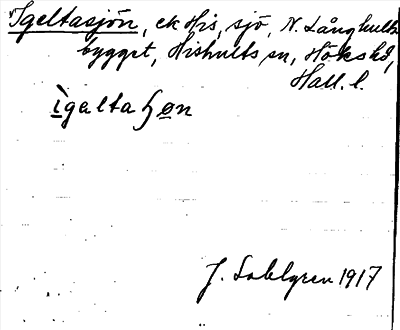 Igeltasjön, ek His, sjö, N. Långhults
bygget, Hishults sn, Höks hd,
Hall. l.
ìgęltaɧøn
J. Sahlgren 1917